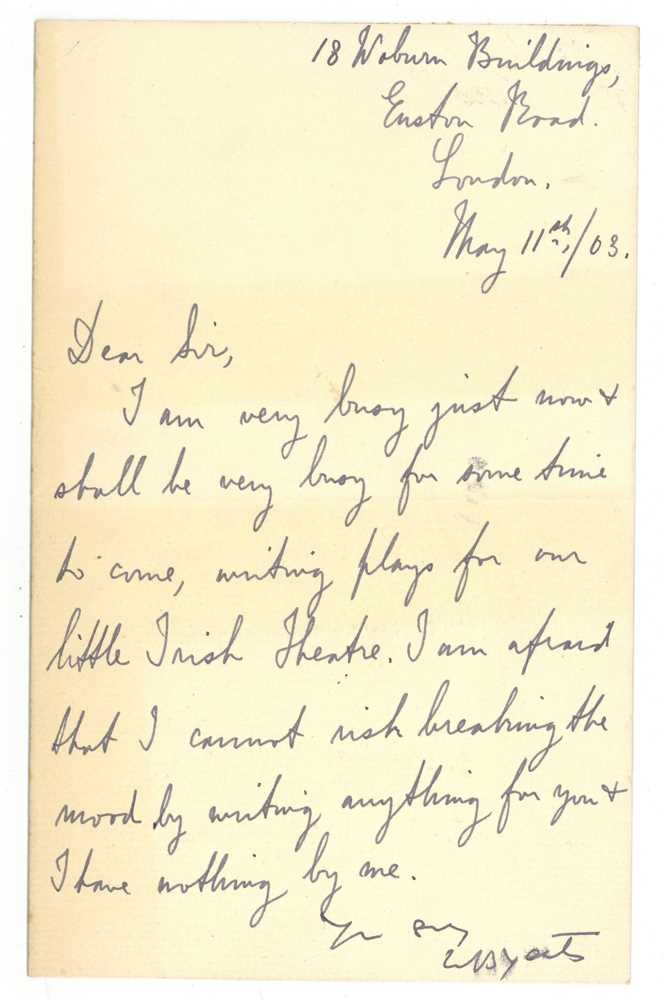 18 Woburn Buildings,
Euston Road.
London.
May 11th,/03.
Dear Sir,
I am very busy just now &
shall be very busy for some time
to come, writing plays for our
little Irish Theatre. I am afraid
that I cannot risk breaking the
mood by writing anything for you &
I have nothing by me.
Yrs sny
WB Yeats